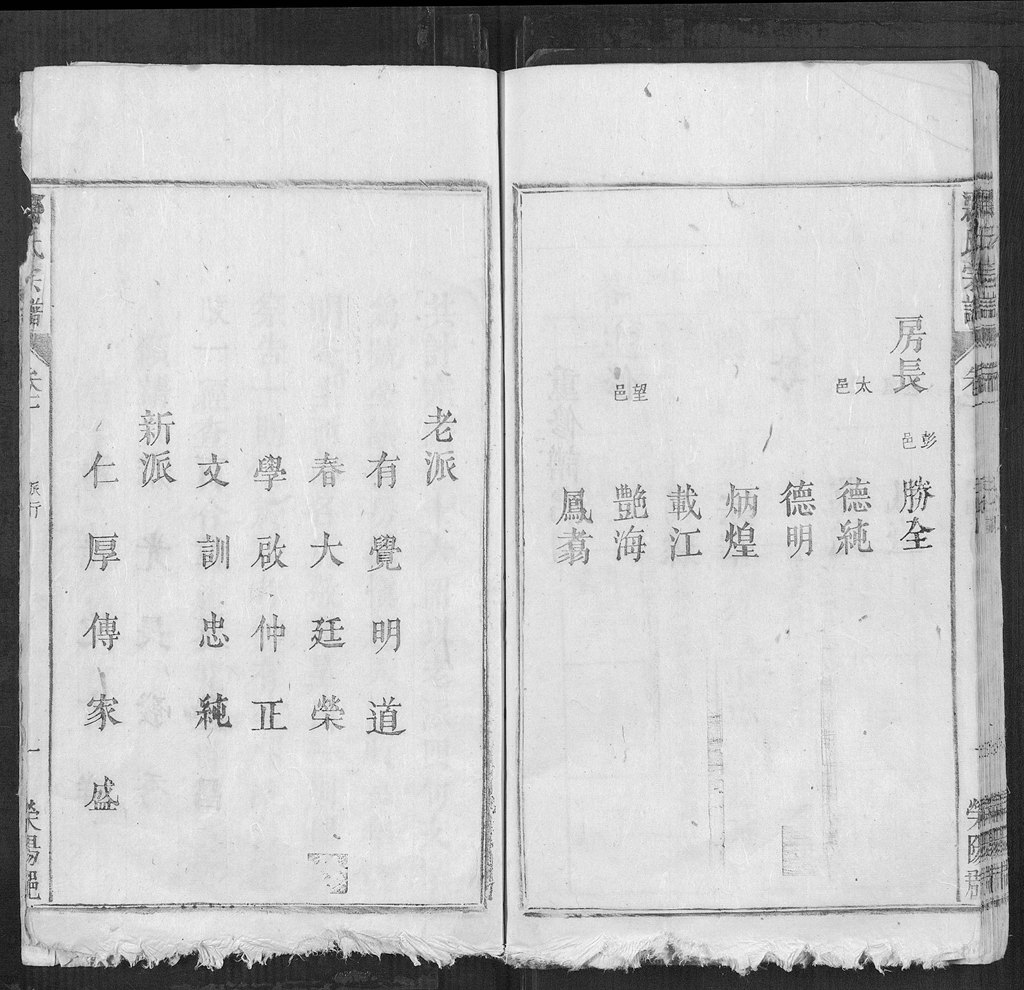 氏宗譜
房長 彭邑 勝全
太邑 德純
德明
炳煌
載江
望邑 艷海
鳳翥
老派
有覺明道
春大廷榮
學啟仲正
文訓忠純
新派
仁厚傳家盛
氏宗譜 派行 一